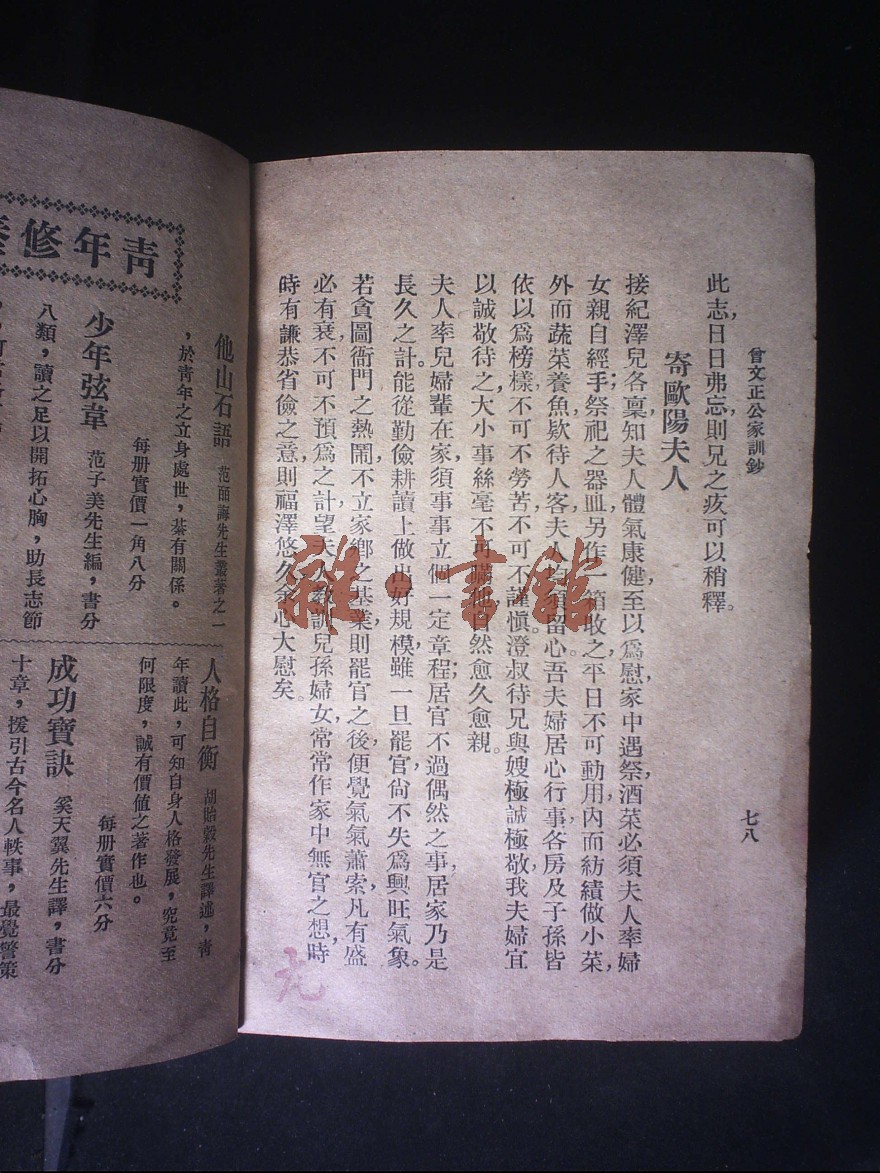 曾文正公家訓鈔
七八
此志,日日弗忘,則兄之疚可以稍釋。
寄歐陽夫人
接紀澤兒各稟,知夫人體氣康健,至以爲慰,家中遇祭,酒菜必須夫人率婦
女親自經手;祭祀之器皿,另作一箱收之,平日不可動用,內而紡績做小菜,
外而蔬菜養魚,欵待人客,夫人均須留心,吾夫婦居心行事,各房及子孫皆
依以爲榜樣,不可不勞苦,不可不謹愼。澄叔待兄與嫂極誠極敬,我夫婦宜
以誠敬待之,大小事絲毫不可瞞他,自然愈久愈親。
夫人率兒婦輩在家,須事事立個一定章程;居官不過偶然之事,居家乃是
長久之計。能從勤儉耕讀上做出好規模,雖一旦罷官,尙不失爲興旺氣象。
若貪圖衙門之熱鬧,不立家鄉之基業,則罷官之後,便覺氣氣蕭索,凡有盛
必有衰,不可不預爲之計,望夫人敎訓兒孫婦女,常常作家中無官之想,時
時有謙恭省儉之意,則福澤悠久,余心大慰矣。
雜·書館
青年修養
他山石語 范皕誨先生叢著之一
,於靑年之立身處世,綦有關係。
每册實價一角八分
少年弦韋 范子美先生編,書分
八類,讀之足以開拓心胸,助長志節
人格自衡 胡貽穀先生譯述,靑
年讀此,可知自身人格發展,究竟至
何限度,誠有價値之著作也。
每册實價六分
成功寶訣 奚天翼先生譯,書分
十章,援引古今名人軼事,最覺警策